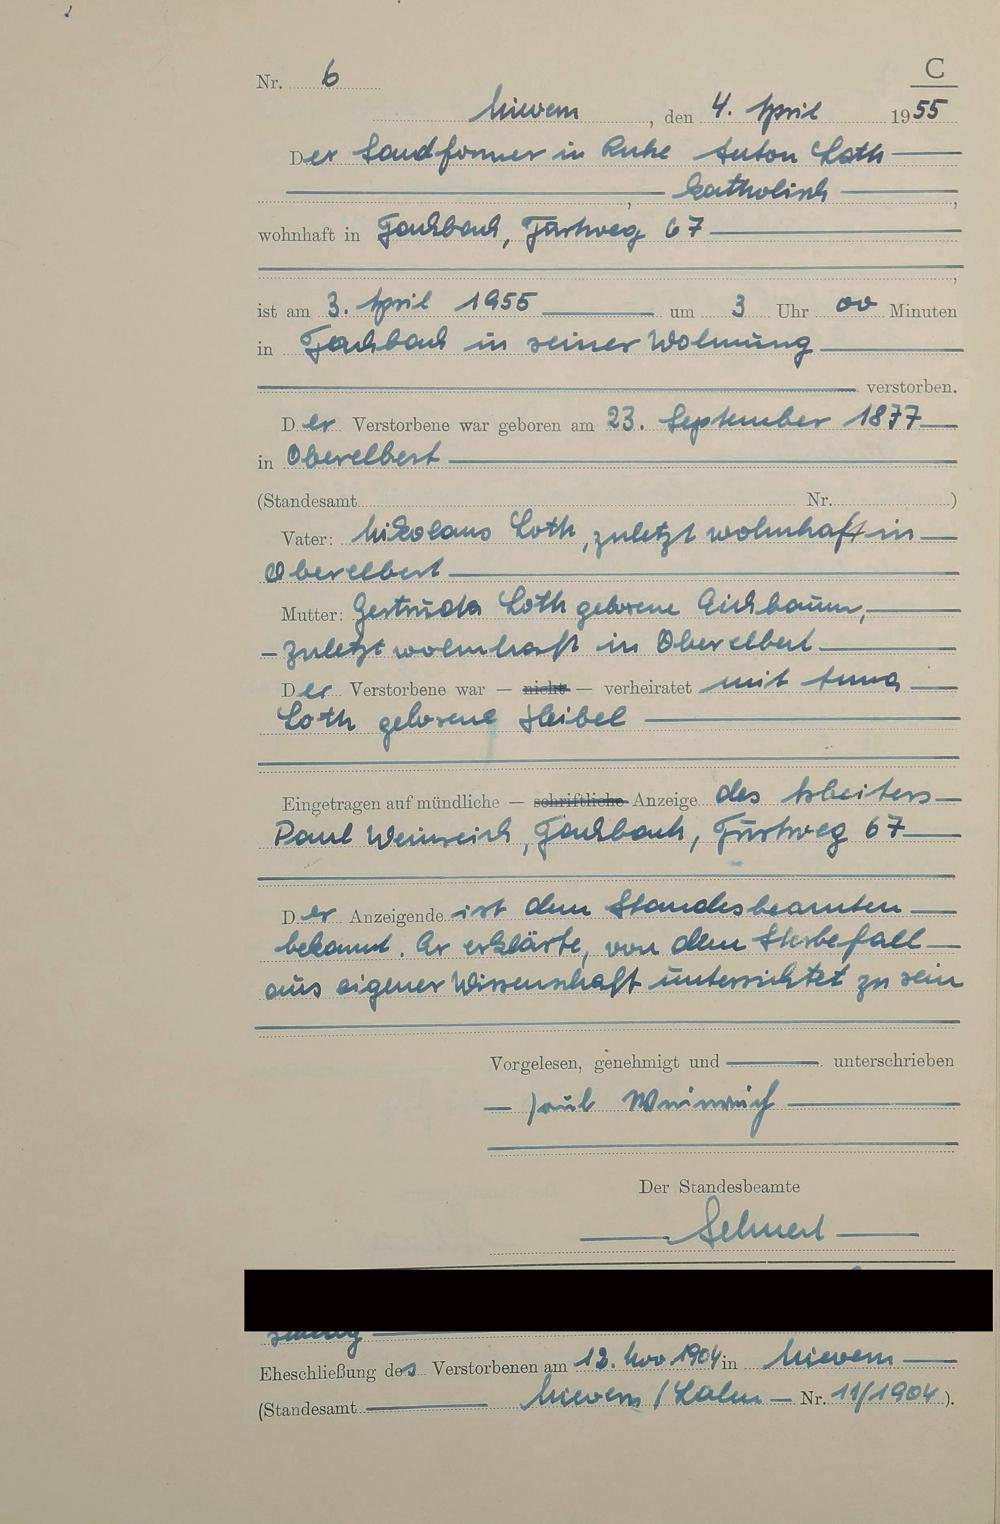 C
Nr. 6
Nievern, den 4. April 1955
Der Sandformer in Ruhe Anton Loth
, katholisch,
wohnhaft in Fachbach, Fürstweg 67
,
ist am 3. April 1955 um 3 Uhr 00 Minuten
in Fachbach in seiner Wohnung
verstorben.
Der Verstorbene war geboren am 23. September 1877
in Oberelbert
(Standesamt Nr. )
Vater: Nikolaus Loth, zuletzt wohnhaft in
Oberelbert
Mutter: Gertruda Loth geborene Eichbaum,
zuletzt wohnhaft in Oberelbert
Der Verstorbene war — nicht — verheiratet mit Anna
Loth geborene Heibel
Eingetragen auf mündliche — schriftliche Anzeige des Arbeiters
Paul Weinreich, Fachbach, Fürstweg 67
Der Anzeigende ist dem Standesbeamten
bekannt. Er erklärte, von dem Sterbefall
aus eigener Wissenschaft unterrichtet zu sein
Vorgelesen, genehmigt und unterschrieben
Paul Weinreich
Der Standesbeamte
Eheschließung des Verstorbenen am 12. Nov 1904 in Nievern
(Standesamt Nievern / Lahn — Nr. 11/1904).